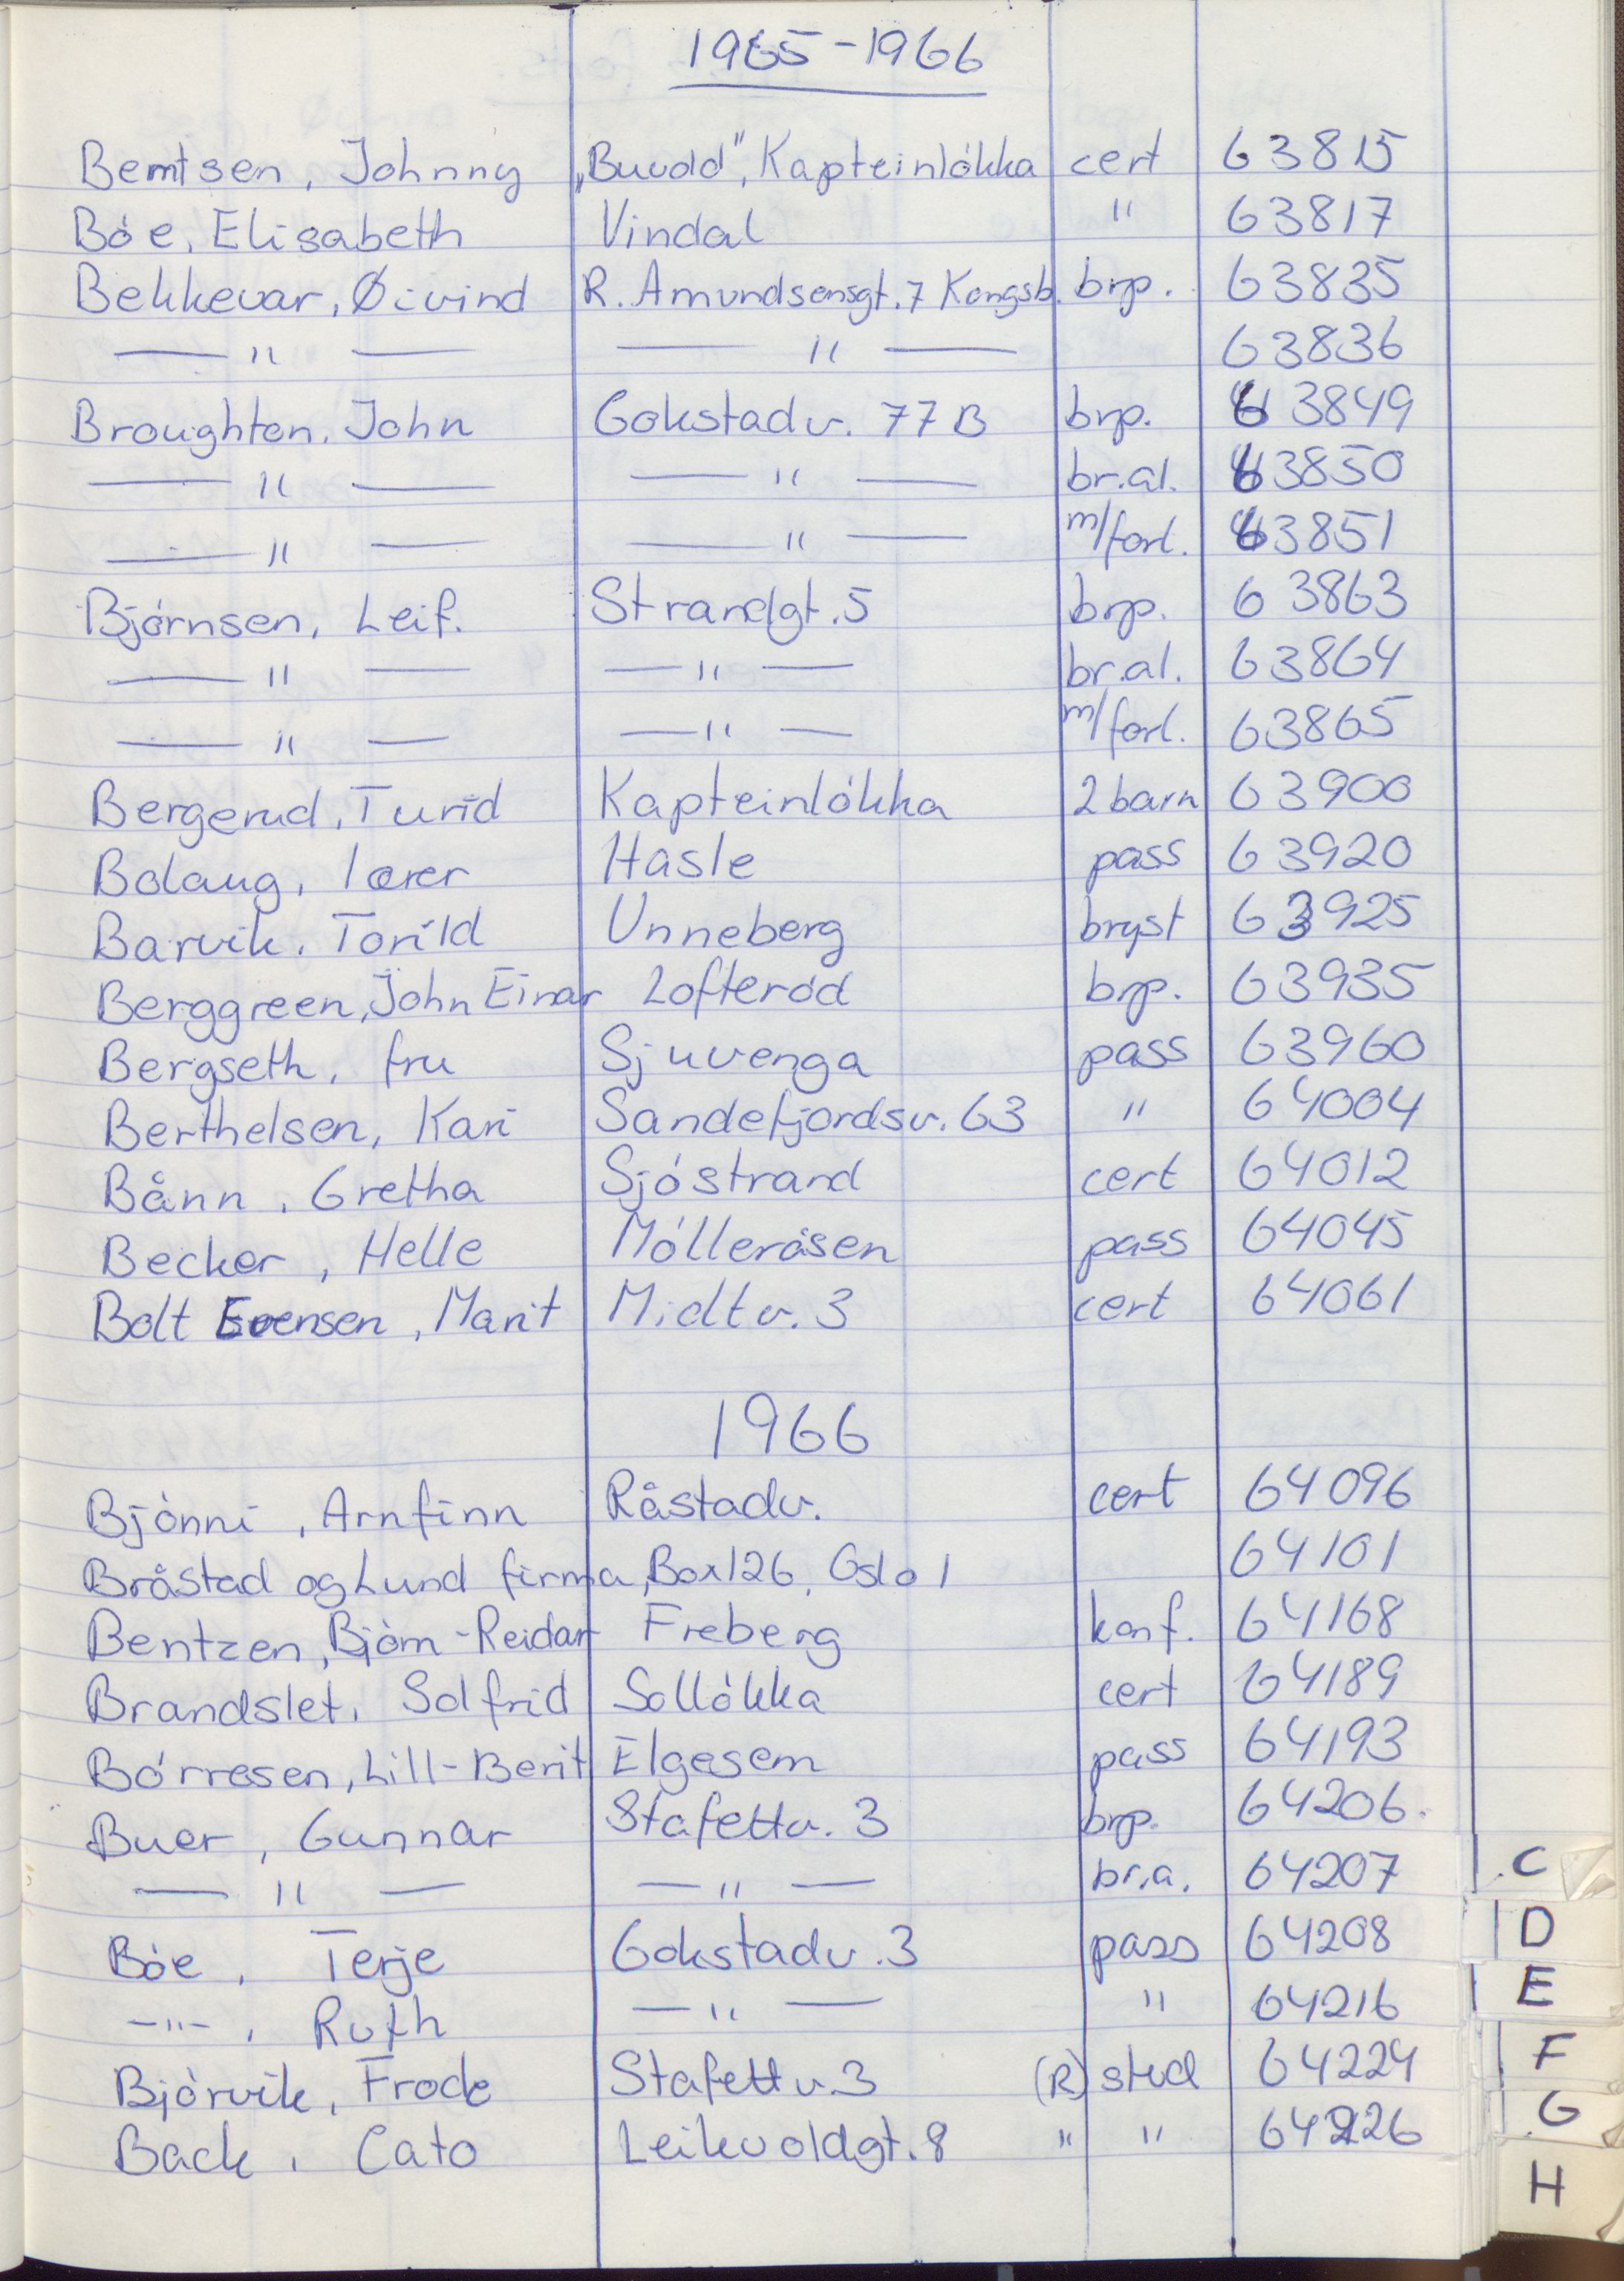 1965-1966
Berntsen, Johnny „Buvold", Kapteinløkka cert 63815
Bøe, Elisabeth Vindal " 63817
Bekkevar, Øivind R. Amundsensgt. 7 Kongsb. brp. 63835
— " — — " — 63836
Broughton, John Gokstadv. 77 B brp. 63849
— " — — " — br.al. 63850
— " — — " — m/forl. 63851
Bjørnsen, Leif. Strandgt. 5 brp. 63863
— " — — " — br.al. 63864
— " — — " — m/forl. 63865
Bergerud, Turid Kapteinløkka 2 barn 63900
Bolaug, lærer Hasle pass 63920
Barvik, Torild Unneberg bryst 63925
Berggreen, John Einar Lofterød brp. 63935
Bergseth, fru Sjuvenga pass 63960
Berthelsen, Kari Sandefjordsv. 63 " 64004
Bånn, Gretha Sjøstrand cert 64012
Becker, Helle Mølleråsen pass 64045
Bolt Evensen, Marit Midtv. 3 cert 64061
1966
Bjønni, Arnfinn Råstadv. cert 64096
Bråstad og Lund firma, Box 126, Oslo 1 64101
Bentzen, Bjørn-Reidar Freberg konf. 64168
Brandslet, Solfrid Solløkka cert 64189
Børresen, Lill-Berit Elgesem pass 64193
Buer, Gunnar Stafettv. 3 brp. 64206.
— " — — " — br.a. 64207
Bøe, Terje Gokstadv. 3 pass 64208
-"-, Ruth — " — " 64216
Bjørvik, Frode Stafettv. 3 (R) stud 64224
Back, Cato Leikvoldgt. 8 " " 64226
C
D
E
F
G
H